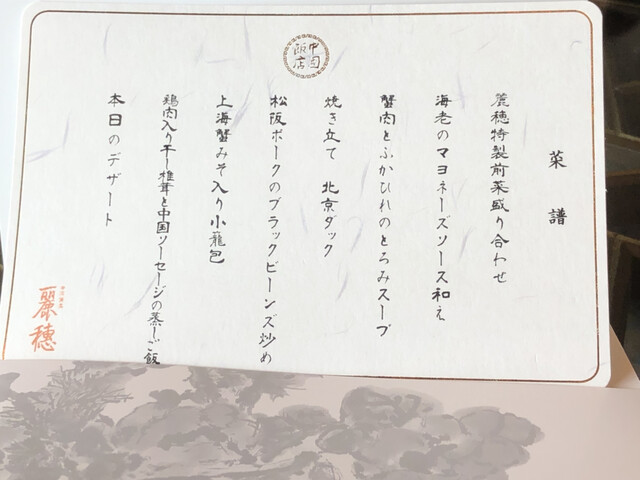 中国
飯店
菜譜
麗穂特製前菜盛り合わせ
海老のマヨネーズソース和え
蟹肉とふかひれのとろみスープ
焼き立て 北京ダック
松阪ポークのブラックビーンズ炒め
上海蟹みそ入り小籠包
鶏肉入り干し椎茸と中国ソーセージの蒸しご飯
本日のデザート
麗穂